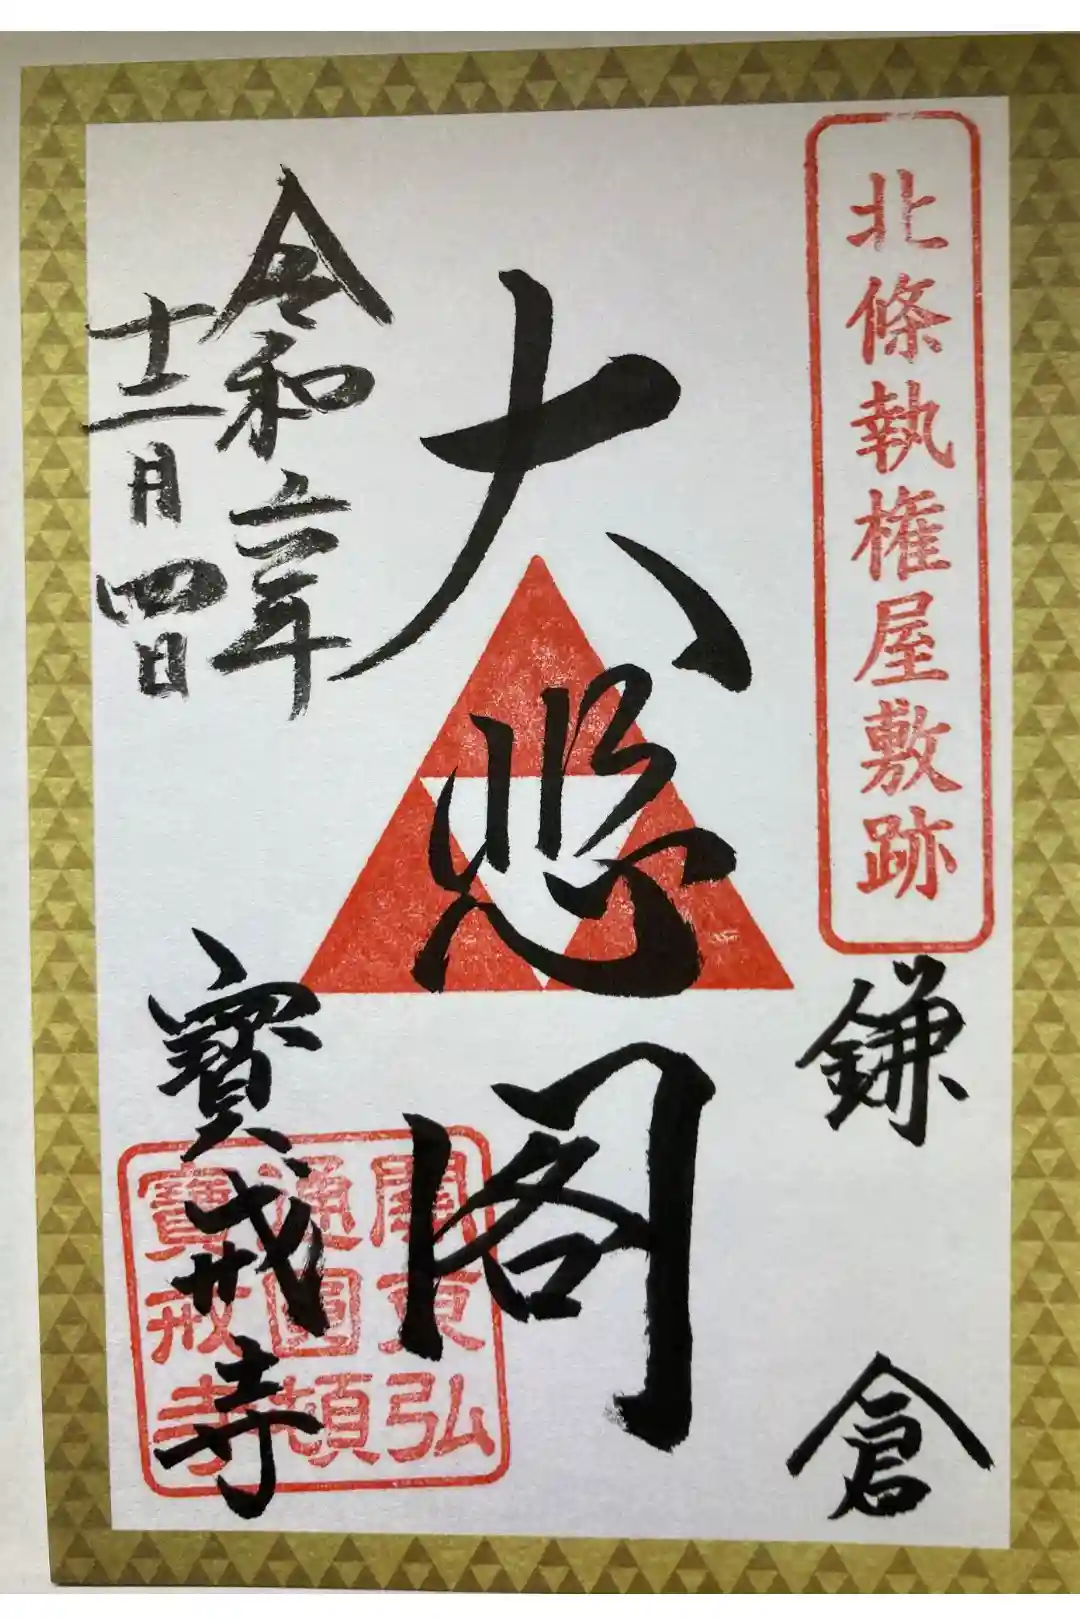 北條執権屋敷跡
鎌倉
大悲閣
令和六年
十二月四日
寶戒寺
關東弘
通圓頓
寶戒寺